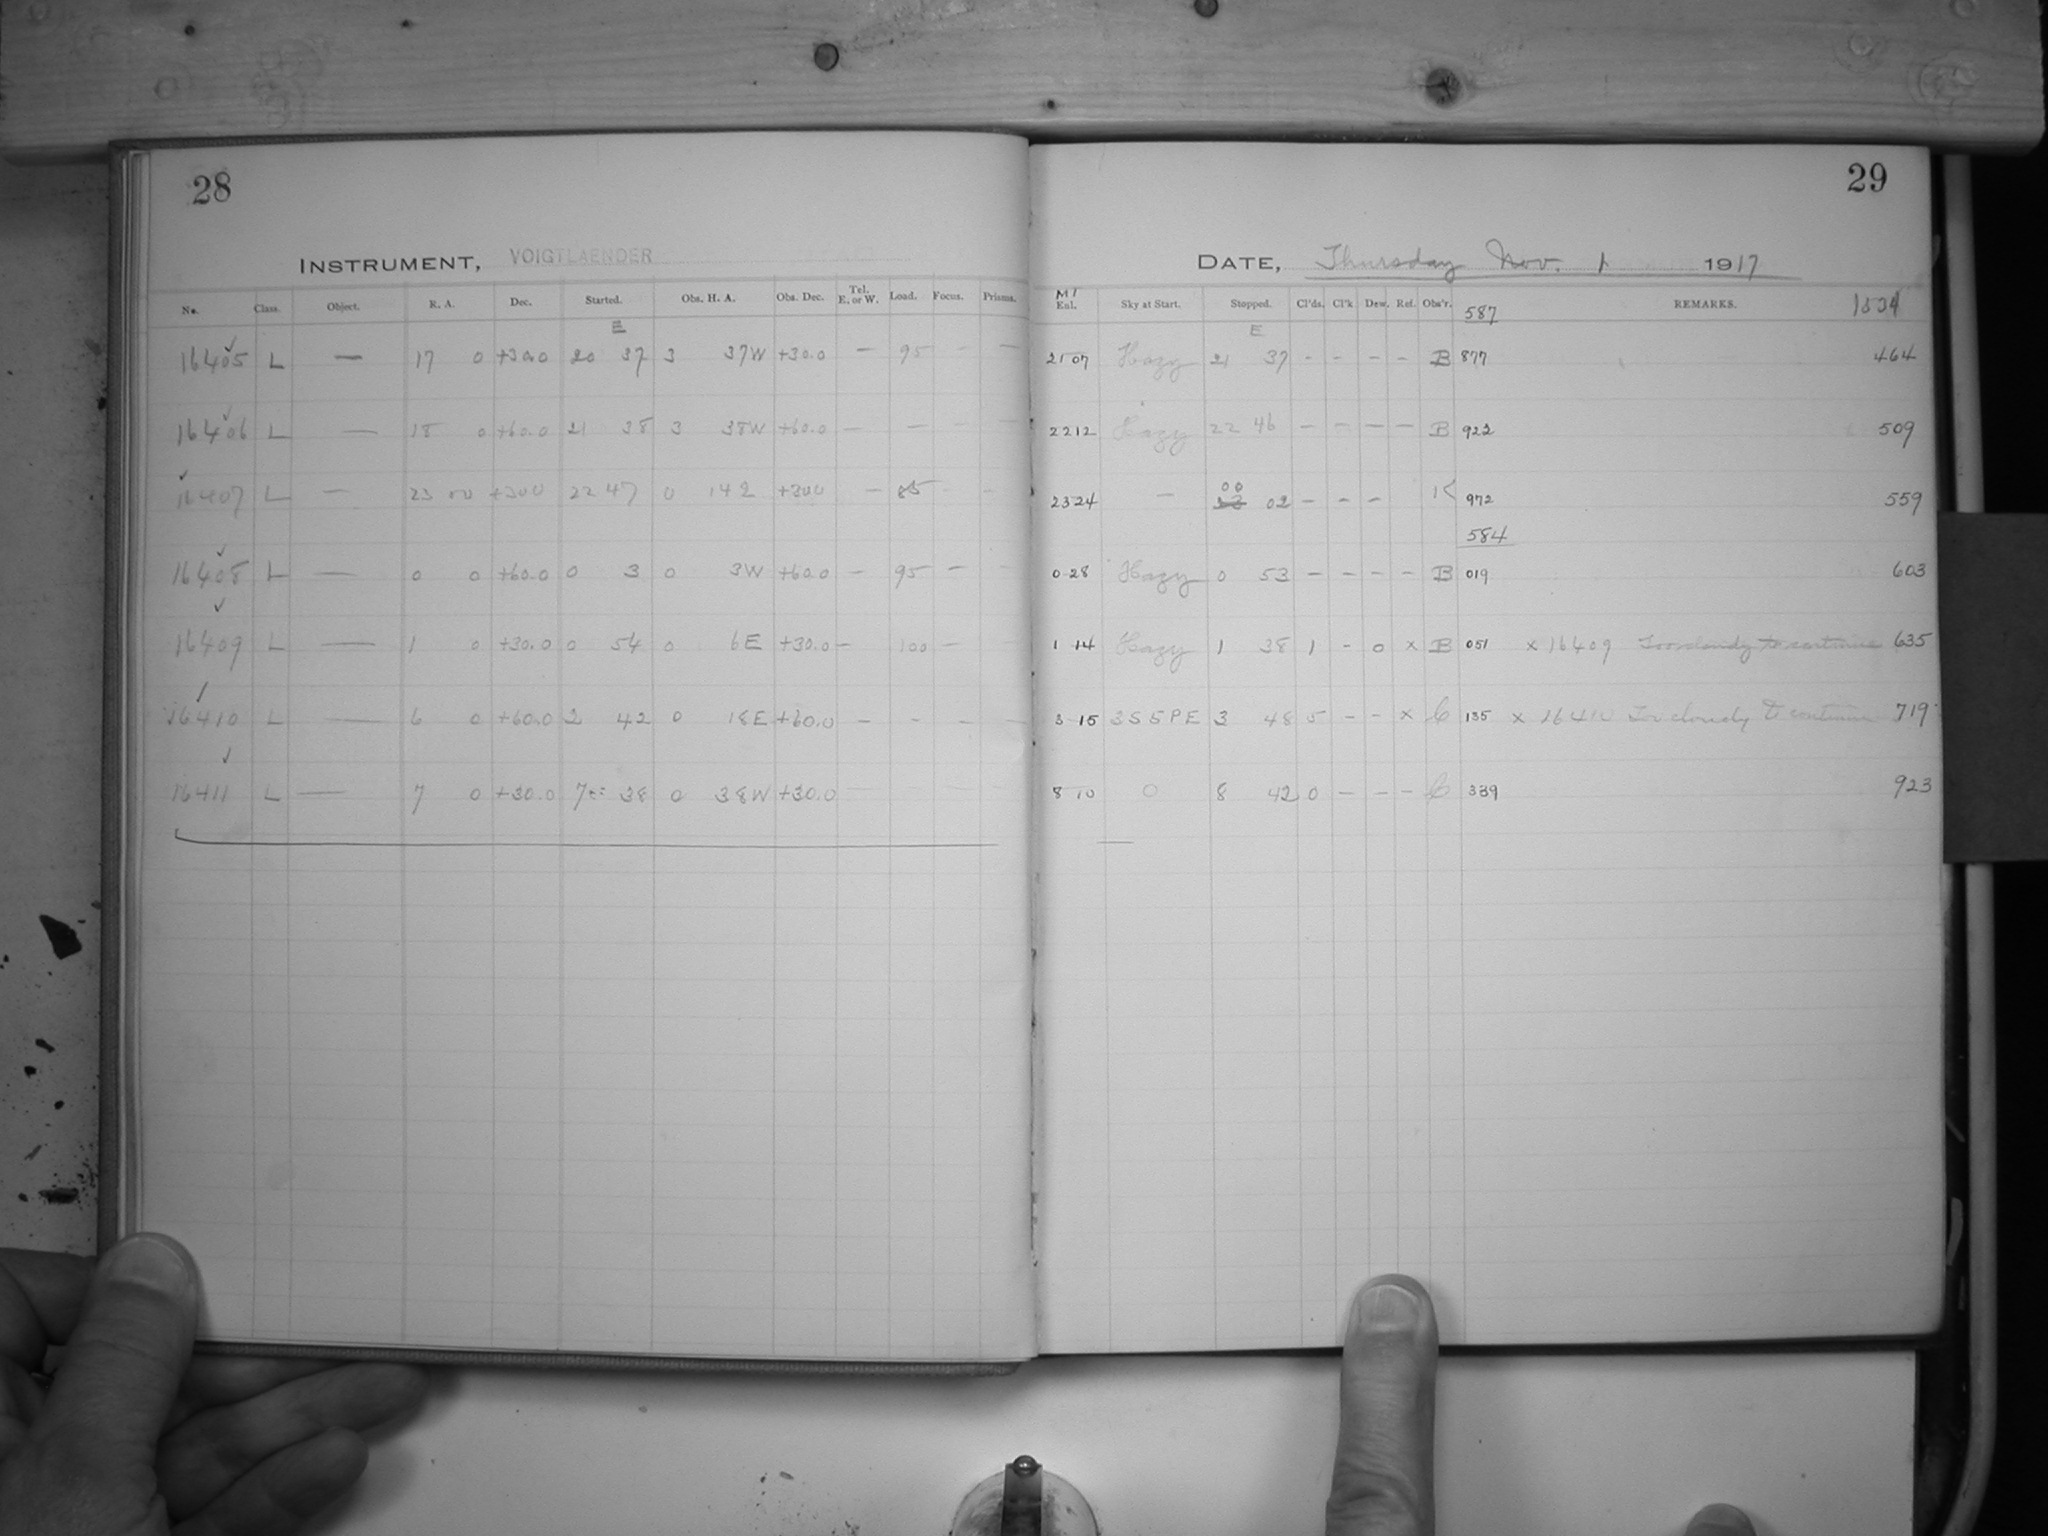 28
INSTRUMENT, VOIGTLAENDER
No. Class. Object. R. A. Dec. Started. Obs. H. A. Obs. Dec. Tel. E. or W. Load. Focus. Prisms.
E
16405 L — 17 0 +30.0 20 37 3 37W +30.0 — 95 — —
16406 L — 18 0 +60.0 21 38 3 38W +60.0 — — — —
16407 L — 23 00 +300 22 47 0 +300 — 85 — —
16408 L — 0 0 +60.0 0 3 0 3W +60.0 — 95 — —
16409 L — 1 0 +30.0 0 54 0 6E +30.0 — 100 — —
16410 L — 6 0 +60.0 2 42 0 18E +60.0 — — — —
16411 L — 7 0 +30.0 7 38 0 38W +30.0
29
DATE, Thursday Nov. 1 1917
MT Exl. Sky at Start. Stopped. Cl'ds. Cl'k Dew. Ref. Obs'r. 587 REMARKS. 1534
E
21 07 Hazy 21 37 - - - - B 877 464
22 12 Hazy 22 46 - - - - B 922 509
23 24 — 00 02 - - - K 972 559
584
0 28 Hazy 0 53 - - - - B 019 603
1 14 Hazy 1 38 1 - 0 x B 051 x 16409 Too cloudy to continue 635
3 15 3S5PE 3 48 5 - - x C 135 x 16410 Too cloudy to continue 719
8 10 0 8 42 0 - - - C 339 923